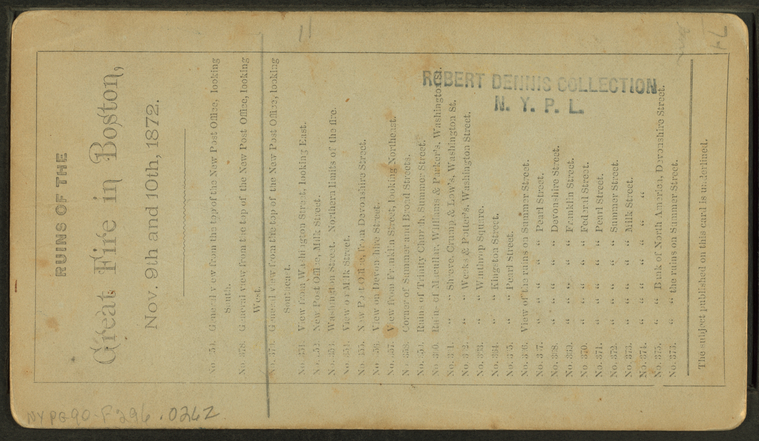 RUINS OF THE
Great Fire in Boston,
Nov. 9th and 10th, 1872.
General view from the top of the New Post Office, looking
South.
General view from the top of the New Post Office, looking
West.
General view from the top of the New Post Office, looking
View from Washington Street, looking East.
New Post Office, Milk Street.
Washington Street. Northern limits of the fire.
View on Milk Street.
New Post Office, from Devonshire Street.
View on Devonshire Street.
View from Franklin Street, looking Northeast.
Corner of Summer and Broad Streets.
Ruins of Trinity Church, Summer Street.
Ruins of Macullar, Williams & Parker's, Washington St.
" " Shreve, Crump & Low's, Washington St.
" " Weeks & Potter's, Washington Street.
" " Winthrop Square.
" " Kingston Street.
" " Pearl Street.
View of the ruins on Summer Street.
" " " " Pearl Street.
" " " " Devonshire Street.
" " " " Franklin Street.
" " " " Federal Street.
" " " " Pearl Street.
" " " " Summer Street.
" " " " Milk Street.
" " " " " "
" " Bank of North America, Devonshire Street.
" " the ruins on Summer Street.
The subject published on this card is underlined.
ROBERT DENNIS COLLECTION
N. Y. P. L.
NYPG90-F296 .0262